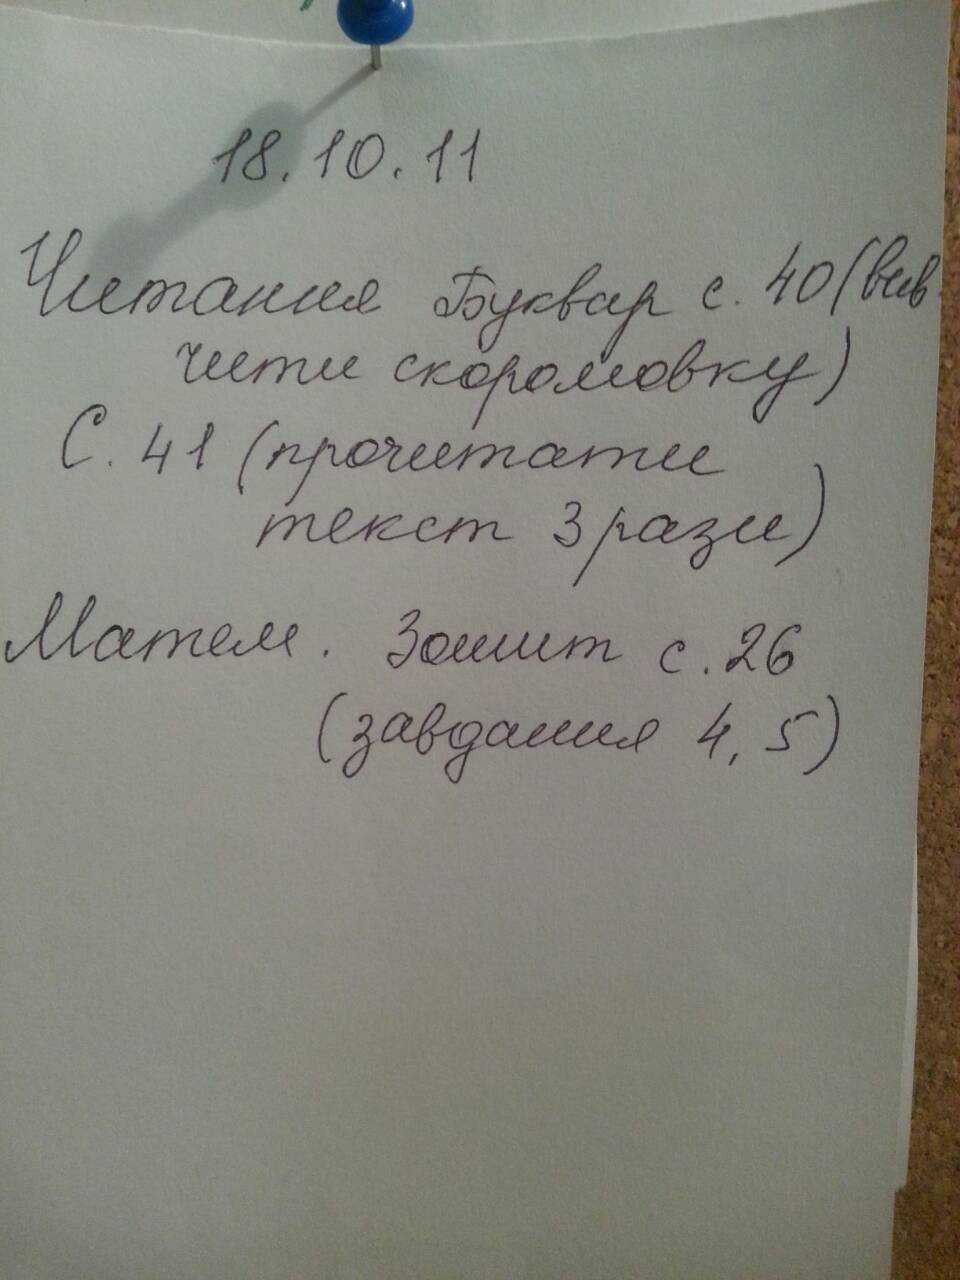 18.10.11
Читання Буквар с. 40 (вив
чити скоромовку)
С. 41 (прочитати
текст 3 рази)
Матем. Зошит с. 26
(завдання 4, 5)